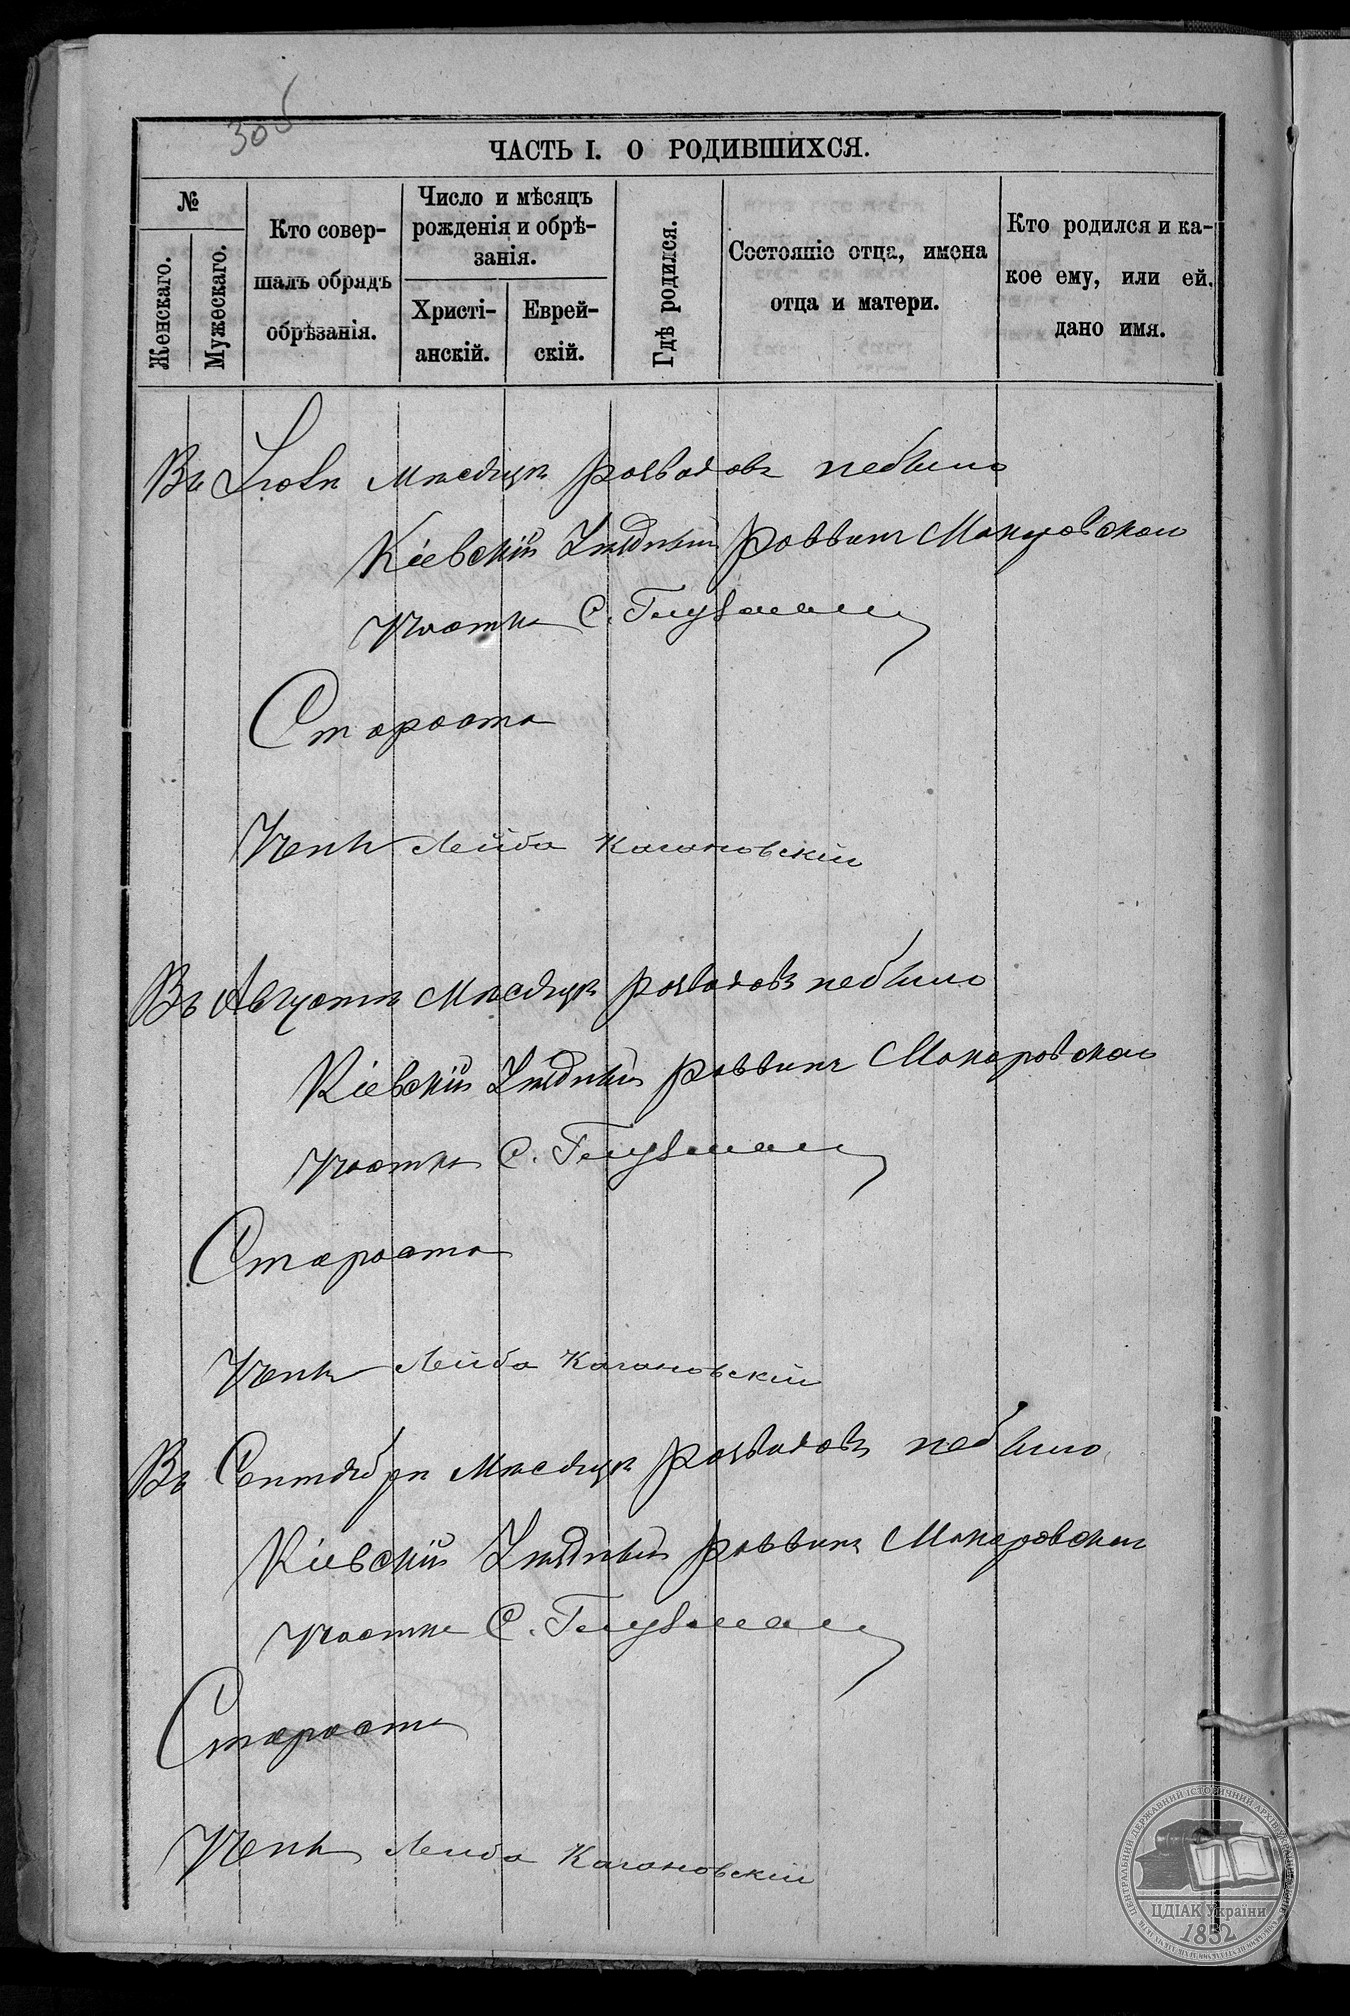 306
ЧАСТЬ I. О РОДИВШИХСЯ.
№
Женскаго.
Мужескаго.
Кто совер-
шалъ обрядъ
обрѣзанія.
Число и мѣсяцъ
рожденія и обрѣ-
занія.
Христі-
анскій.
Еврей-
скій.
Гдѣ родился.
Состояніе отца, имена
отца и матери.
Кто родился и ка-
кое ему, или ей,
дано имя.
Въ Іюлѣ мѣсяцѣ розводовъ небыло
Кіевскій Уѣздный Раввинъ Макаровскаго
Участка С. Глузманъ
Староста
Ученъ Лейба Кагановскій
Въ Августѣ мѣсяцѣ розводовъ небыло
Кіевскій Уѣздный Раввинъ Макаровскаго
Участка С. Глузманъ
Староста
Ученъ Лейба Кагановскій
Въ Сентябрѣ мѣсяцѣ розводовъ небыло
Кіевскій Уѣздный Раввинъ Макаровскаго
Участка С. Глузманъ
Староста
Ученъ Лейба Кагановскій
ЦЕНТРАЛЬНИЙ ДЕРЖАВНИЙ ІСТОРИЧНИЙ АРХІВ УКРАЇНИ
ЦДІАК України
1852